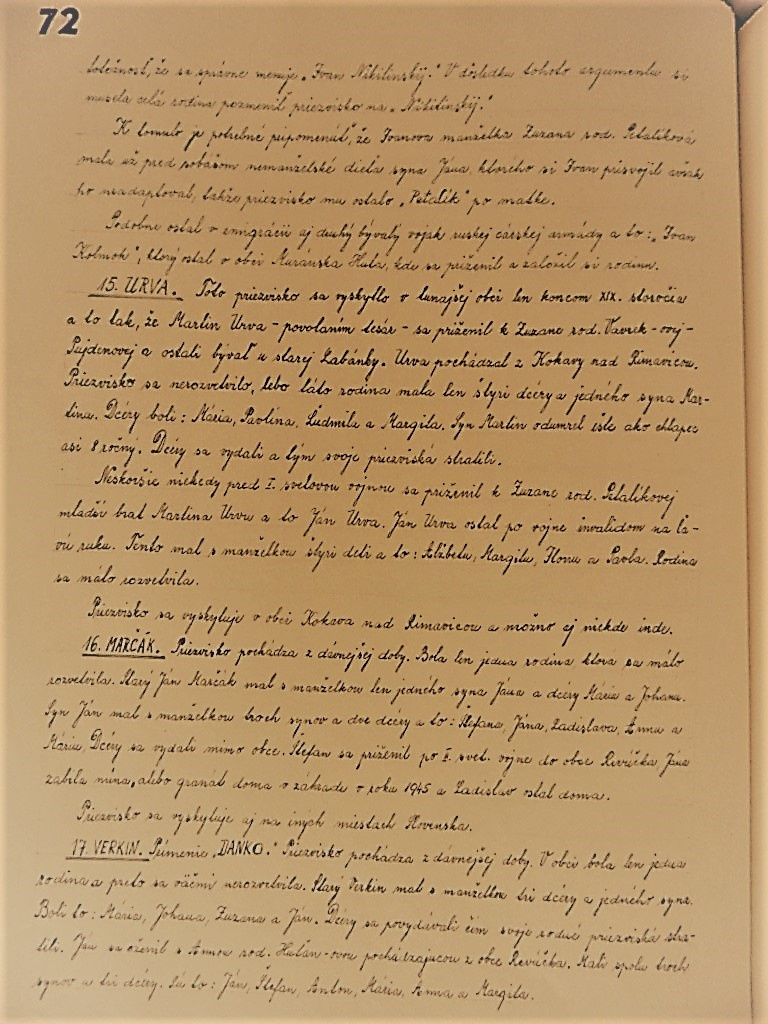 72
totožnosť, že sa správne menuje „Ivan Nikitinskij." V dôsledku tohoto argumentu si
musela celá rodina pozmeniť priezvisko na „Nikitinskij."
K tomuto je potrebné pripomenúť, že Ivanova manželka Zuzana rod. Petalíková
mala už pred sobášom nemanželské dieťa syna Jána, ktorého si Ivan prisvojil avšak
ho neadaptoval, takže priezvisko mu ostalo „Petalík" po matke.
Podobne ostal v emigrácii aj druhý bývalý vojak ruskej cárskej armády a to: „Ivan
Kolmok", ktorý ostal v obci Muránska Huta, kde sa priženil a založil si rodinu.
15. URVA. Toto priezvisko sa vyskytlo v tunajšej obci len koncom XIX. storočia
a to tak, že Martin Urva - povolaním tesár - sa priženil k Zuzane rod. Vavrek-ovej-
Pujdenovej a ostali bývať u starej Labánky. Urva pochádzal z Kokavy nad Rimavicou.
Priezvisko sa nerozvetvilo, lebo táto rodina mala len štyri dcéry a jedného syna Mar-
tina. Dcéry boli: Mária, Pavlína, Ludmila a Margita. Syn Martin odumrel ešte ako chlapec
asi 8 ročný. Dcéry sa vydali a tým svoje priezviská stratili.
Neskoršie niekedy pred I. svetovou vojnou sa priženil k Zuzane rod. Petalíkovej
mladší brat Martina Urvu a to Ján Urva. Ján Urva ostal po vojne invalidom na ľa-
vú ruku. Tento mal s manželkou štyri deti a to: Alžbetu, Margitu, Ilonu a Pavla. Rodina
sa málo rozvetvila.
Priezvisko sa vyskytuje v obci Kokava nad Rimavicou a možno aj niekde inde.
16. MARČÁK. Priezvisko pochádza z dávnejšej doby. Bola len jedna rodina ktorá sa málo
rozvetvila. Starý Ján Marčák mal s manželkou len jedného syna Jána a dcéry Mária a Johana.
Syn Ján mal s manželkou troch synov a dve dcéry a to: Štefana, Jána, Ladislava, Annu a
Máriu, Dcéry sa vydali mimo obce. Štefan sa priženil po II. svet. vojne do obce Revúčka, Jána
zabila mína, alebo granát doma v záhrade v roku 1945 a Ladislav ostal doma.
Priezvisko sa vyskytuje aj na iných miestach Slovenska.
17. VERKIN. Prímenie „DANKO." Priezvisko pochádza z dávnejšej doby. V obci bola len jedna
rodina a preto sa väčmi nerozvetvila. Starý Verkin mal s manželkou tri dcéry a jedného syna.
Boli to: Mária, Johana, Zuzana a Ján. Dcéry sa povydávali čím svoje rodné priezviská stra-
tili. Ján sa oženil s Annou rod. Hulan-ovou pochádzajúcou z obce Revúčka. Mali spolu troch
synov a tri dcéry. Sú to: Ján, Štefan, Anton, Mária, Anna a Margita.